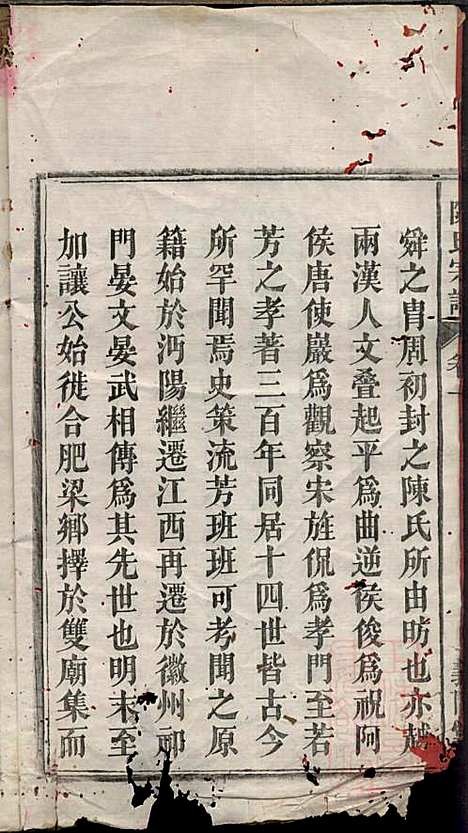 陳氏宗譜 卷一
舜之胄周初封之陳氏所由昉也亦越
兩漢人文叠起平為曲逆侯俊為祝阿
侯唐使巖為觀察宋旌侃為孝門至若
芳之孝著三百年同居十四世皆古今
所罕聞焉史策流芳班班可考聞之原
籍始於沔陽繼遷江西再遷於徽州祁
門晏文晏武相傳為其先世也明末至
加讓公始徙合肥梁鄉擇於雙廟集而